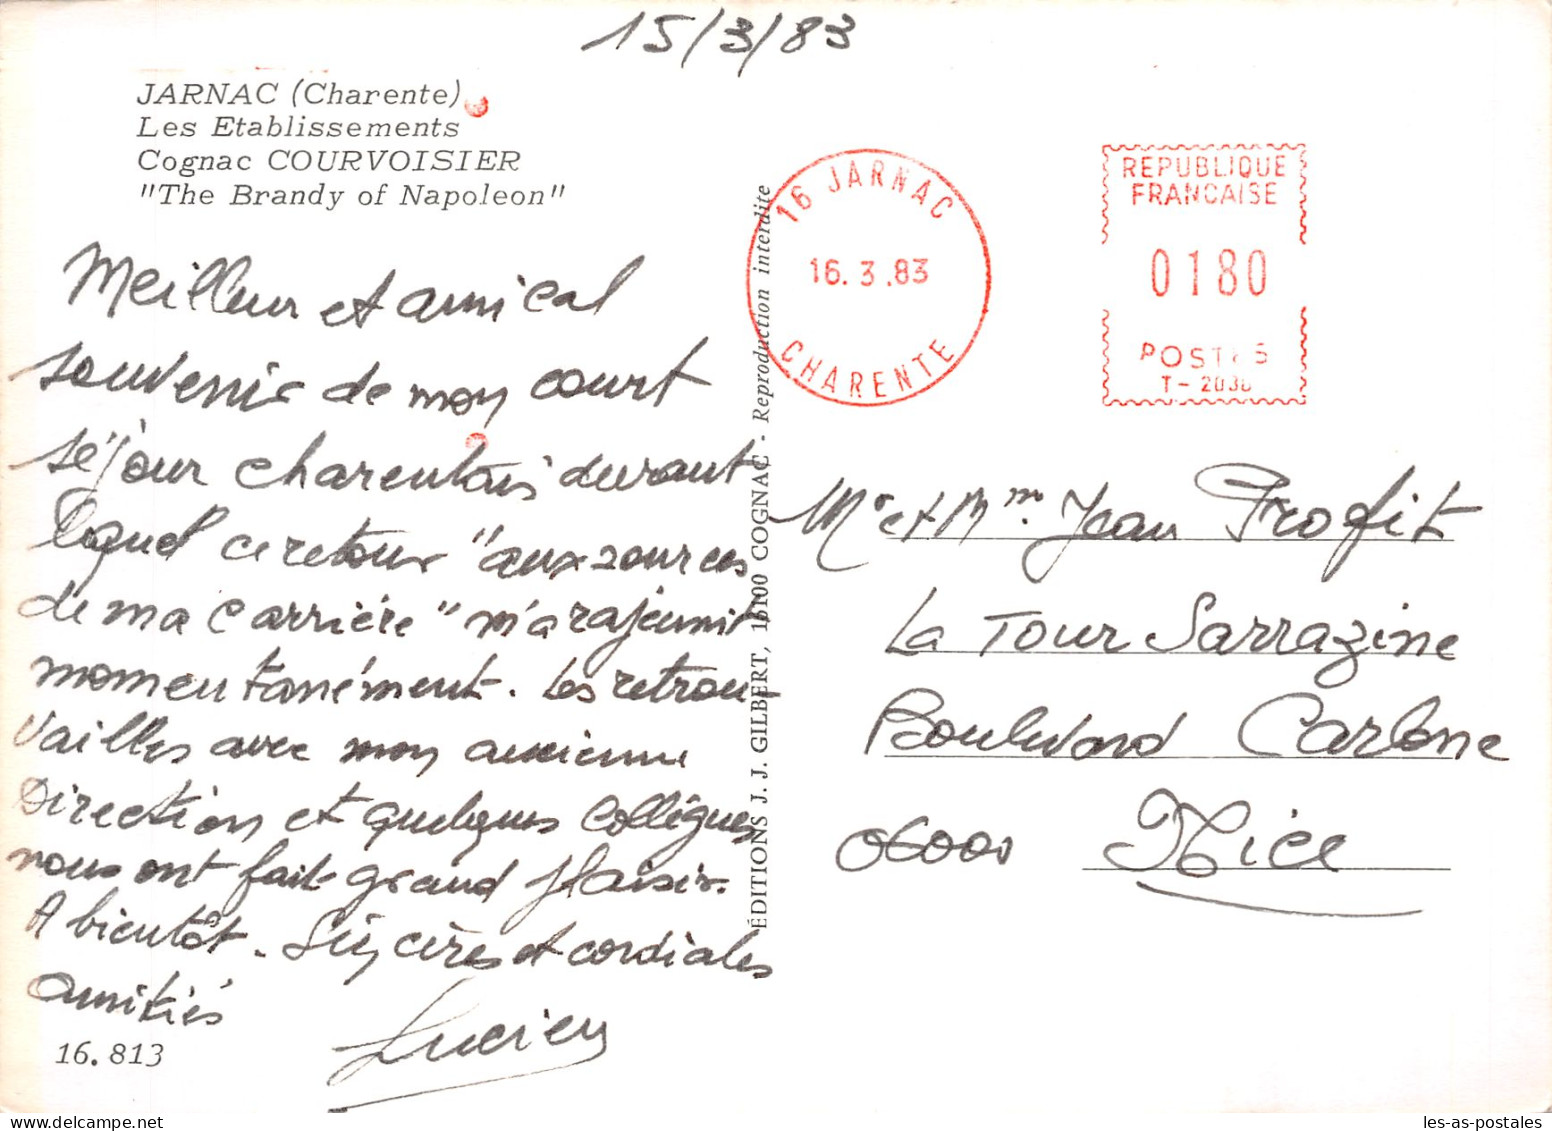 15/3/83
JARNAC (Charente)
Les Etablissements
Cognac COURVOISIER
"The Brandy of Napoleon"
Meilleur et amical
souvenir de mon court
séjour charentais durant
lequel ce retour "aux sources
de ma carrière" m'a rajeunit
momentanément. Les retrou-
vailles avec mon ancienne
Direction et quelques collègues
nous ont fait grand plaisir.
A bientôt. Sincères et cordiales
amitiés
Lucien
16.813
ÉDITIONS J. J. GILBERT, 16100 COGNAC - Reproduction interdite
16 JARNAC
16.3.83
CHARENTE
REPUBLIQUE
FRANCAISE
0180
POSTES
T-2030
Mr et Mme. Jean Profit
La Tour Sarrazine
Boulevard Carlone
06000 Nice
les-as-postales